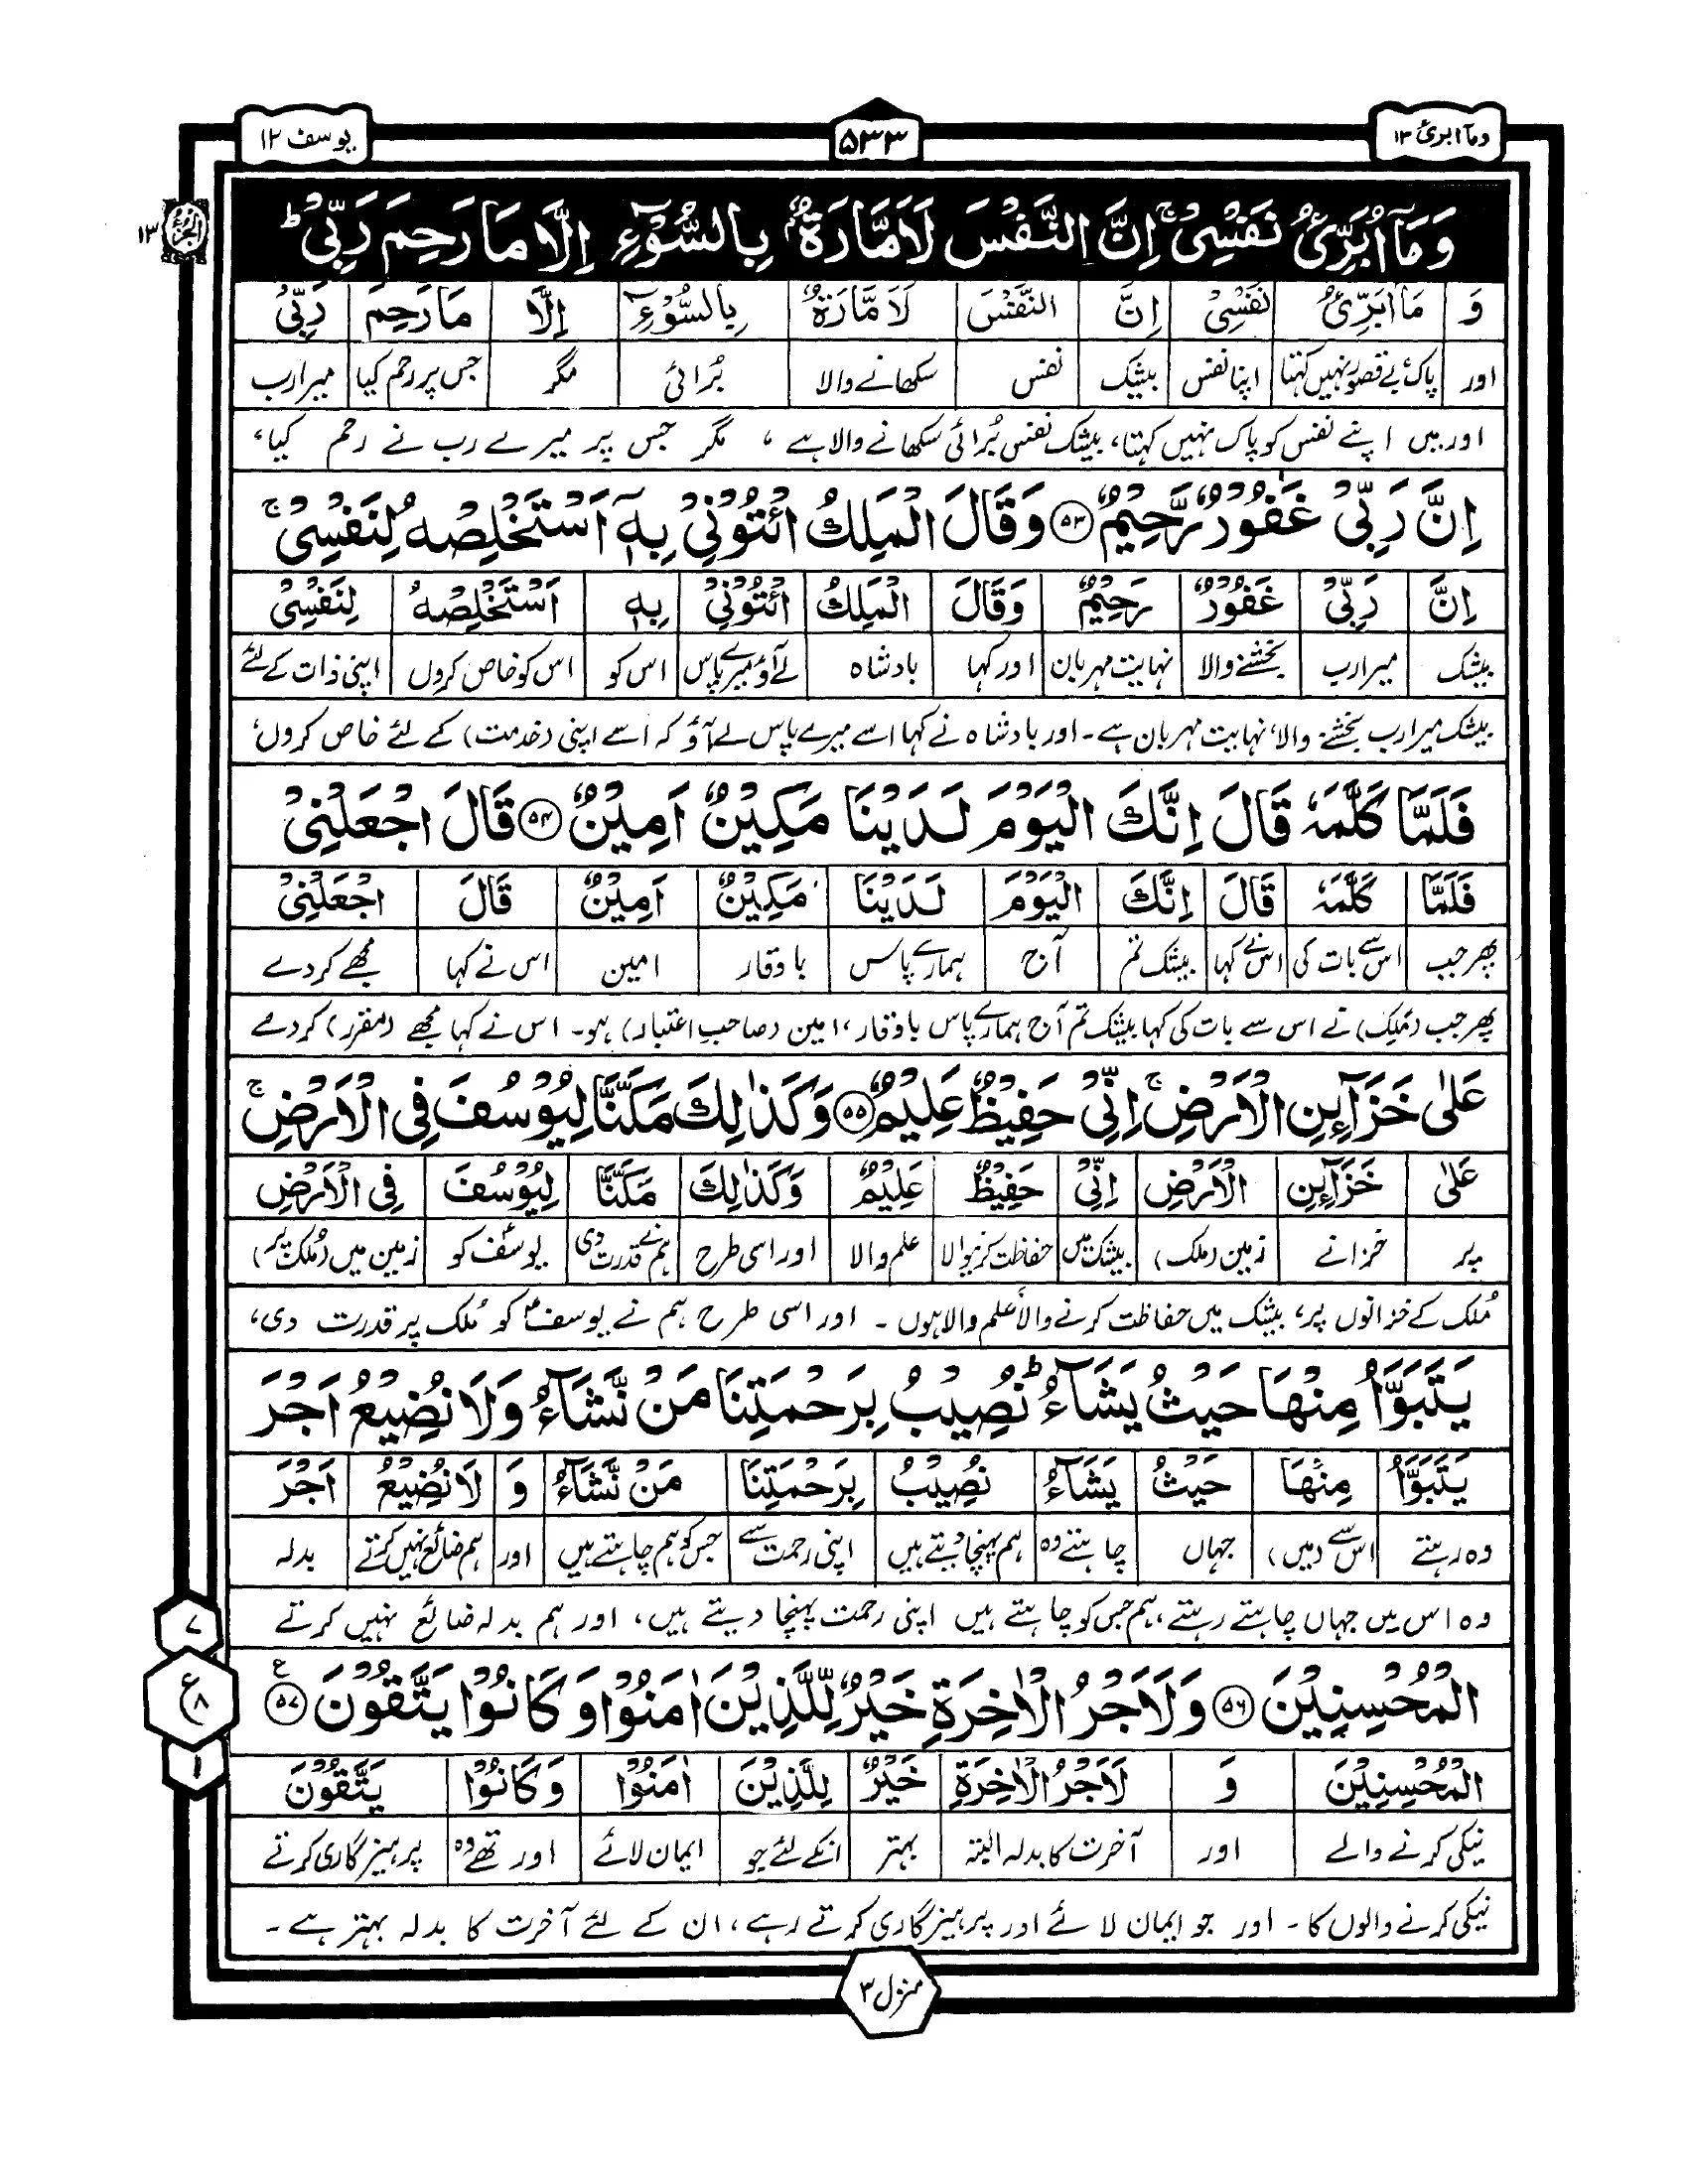 وما ابرئ ۱۳
۵۳۳
یوسف ۱۲
الجزء ۱۳
وَمَآ اُبَرِّئُ نَفْسِیْ ۚ اِنَّ النَّفْسَ لَاَمَّارَةٌۢ بِالسُّوْٓءِ اِلَّا مَا رَحِمَ رَبِّیْ ؕ
وَ مَا اُبَرِّئُ نَفْسِیْ اِنَّ النَّفْسَ لَاَمَّارَةٌ بِالسُّوْٓءِ اِلَّا مَا رَحِمَ رَبِّیْ
اور پاک بےقصور نہیں کہتا اپنا نفس بیشک نفس سکھانے والا بُرائی مگر جس پر رحم کیا میرا رب
اور میں اپنے نفس کو پاک نہیں کہتا، بیشک نفس بُرائی سکھانے والا ہے ، مگر جس پر میرے رب نے رحم کیا،
اِنَّ رَبِّیْ غَفُوْرٌ رَّحِیْمٌ ﴿۵۳﴾ وَقَالَ الْمَلِكُ ائْتُوْنِیْ بِهٖٓ اَسْتَخْلِصْهُ لِنَفْسِیْ ۚ
اِنَّ رَبِّیْ غَفُوْرٌ رَحِیْمٌ وَقَالَ الْمَلِكُ ائْتُوْنِیْ بِهٖ اَسْتَخْلِصْهُ لِنَفْسِیْ
بیشک میرا رب بخشنے والا نہایت مہربان اور کہا بادشاہ لے آؤ میرے پاس اس کو اس کو خاص کروں اپنی ذات کے لئے
بیشک میرا رب بخشنے والا، نہایت مہربان ہے۔ اور بادشاہ نے کہا اسے میرے پاس لے آؤ کہ اسے اپنی (خدمت) کے لئے خاص کروں،
فَلَمَّا كَلَّمَهٗ قَالَ اِنَّكَ الْیَوْمَ لَدَیْنَا مَكِیْنٌ اَمِیْنٌ ﴿۵۴﴾ قَالَ اجْعَلْنِیْ
فَلَمَّا كَلَّمَهٗ قَالَ اِنَّكَ الْیَوْمَ لَدَیْنَا مَكِیْنٌ اَمِیْنٌ قَالَ اجْعَلْنِیْ
پھر جب اس سے بات کی اس نے کہا بیشک تم آج ہمارے پاس با وقار امین اس نے کہا مجھے کر دے
پھر جب (ملِک) نے اس سے بات کی کہا بیشک تم آج ہمارے پاس با وقار، امین (صاحبِ اعتبار) ہو۔ اس نے کہا مجھے (مقرر) کر دے
عَلٰی خَزَآئِنِ الْاَرْضِ ۚ اِنِّیْ حَفِیْظٌ عَلِیْمٌ ﴿۵۵﴾ وَكَذٰلِكَ مَكَّنَّا لِیُوْسُفَ فِی الْاَرْضِ ۚ
عَلٰی خَزَآئِنِ الْاَرْضِ اِنِّیْ حَفِیْظٌ عَلِیْمٌ وَكَذٰلِكَ مَكَّنَّا لِیُوْسُفَ فِی الْاَرْضِ
پر خزانے زمین (ملک) بیشک میں حفاظت کرنیوالا علم والا اور اسی طرح ہم نے قدرت دی یوسفؑ کو زمین میں (مُلک پر)
مُلک کے خزانوں پر، بیشک میں حفاظت کرنے والا علم والا ہوں۔ اور اسی طرح ہم نے یوسفؑ کو مُلک پر قدرت دی،
یَتَبَوَّاُ مِنْهَا حَیْثُ یَشَآءُ ؕ نُصِیْبُ بِرَحْمَتِنَا مَنْ نَّشَآءُ وَلَا نُضِیْعُ اَجْرَ
یَتَبَوَّاُ مِنْهَا حَیْثُ یَشَآءُ نُصِیْبُ بِرَحْمَتِنَا مَنْ نَّشَآءُ وَ لَا نُضِیْعُ اَجْرَ
وہ رہتے اس سے (میں) جہاں چاہتے وہ ہم پہنچا دیتے ہیں اپنی رحمت سے جس کو ہم چاہتے ہیں اور ہم ضائع نہیں کرتے بدلہ
وہ اس میں جہاں چاہتے رہتے، ہم جس کو چاہتے ہیں اپنی رحمت پہنچا دیتے ہیں، اور ہم بدلہ ضائع نہیں کرتے
الْمُحْسِنِیْنَ ﴿۵۶﴾ وَلَاَجْرُ الْاٰخِرَةِ خَیْرٌ لِّلَّذِیْنَ اٰمَنُوْا وَكَانُوْا یَتَّقُوْنَ ﴿۵۷﴾ ع
۷
ع ۸
۱
الْمُحْسِنِیْنَ وَ لَاَجْرُ الْاٰخِرَةِ خَیْرٌ لِلَّذِیْنَ اٰمَنُوْا وَكَانُوْا یَتَّقُوْنَ
نیکی کرنے والے اور آخرت کا بدلہ البتہ بہتر انکے لئے جو ایمان لائے اور تھے وہ پرہیزگاری کرتے
نیکی کرنے والوں کا۔ اور جو ایمان لائے اور پرہیزگاری کرتے رہے، ان کے لئے آخرت کا بدلہ بہتر ہے۔
منزل ۳